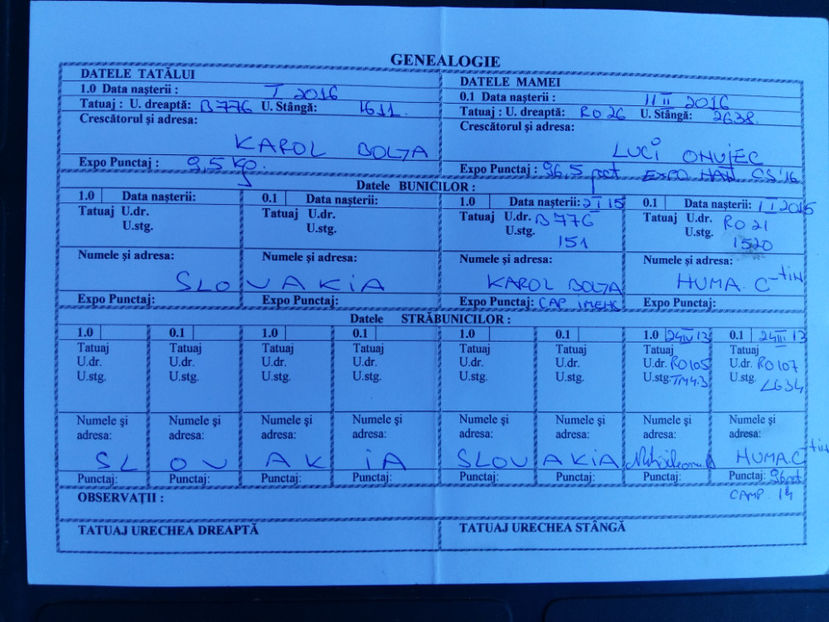 GENEALOGIE
DATELE TATĂLUI
1.0 Data nașterii : I 2016
Tatuaj : U. dreaptă: B776 U. Stângă: 1611
Crescătorul și adresa:
KAROL BOLJA
Expo Punctaj : 9,5 KG.
DATELE MAMEI
0.1 Data nașterii : 11 II 2016
Tatuaj : U. dreaptă: RO 26 U. Stângă: 2638
Crescătorul și adresa:
LUCI ONUJEC
Expo Punctaj : 96,5 pct EXPO NAȚ CS'16
Datele BUNICILOR :
1.0 Data nașterii: 0.1 Data nașterii: 1.0 Data nașterii: I 15 0.1 Data nașterii: I 2015
Tatuaj U.dr. Tatuaj U.dr. Tatuaj U.dr. B776 Tatuaj U.dr. RO 21
U.stg. U.stg. U.stg. 151 U.stg. 1520
Numele și adresa: Numele și adresa: Numele și adresa: Numele și adresa:
SLOVAKIA KAROL BOLJA HUMA C-tin
Expo Punctaj: Expo Punctaj: Expo Punctaj: CAP Expo Punctaj:
Datele STRĂBUNICILOR :
1.0 0.1 1.0 0.1 1.0 0.1 1.0 24 IV 13 0.1 24 III 13
Tatuaj Tatuaj Tatuaj Tatuaj Tatuaj Tatuaj Tatuaj Tatuaj
U.dr. U.dr. U.dr. U.dr. U.dr. U.dr. U.dr. RO105 U.dr. RO107
U.stg. U.stg. U.stg. U.stg. U.stg. U.stg. U.stg. TM43 U.stg. LG34
Numele și Numele și Numele și Numele și Numele și Numele și Numele și Numele și
adresa: adresa: adresa: adresa: adresa: adresa: adresa: adresa:
SLOVAKIA SLOVAKIA HUMA C-tin
Punctaj: Punctaj: Punctaj: Punctaj: Punctaj: Punctaj: Punctaj: Punctaj: 96 pct
OBSERVAȚII : CAMP 14
TATUAJ URECHEA DREAPTĂ TATUAJ URECHEA STÂNGĂ